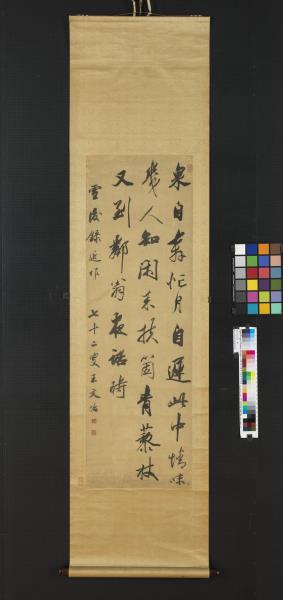 泉自奔忙月自遲此中情味
幾人知閑來扶箇青藜杖
又到鄰翁夜話時
雪後錄近作 七十二叟王文治